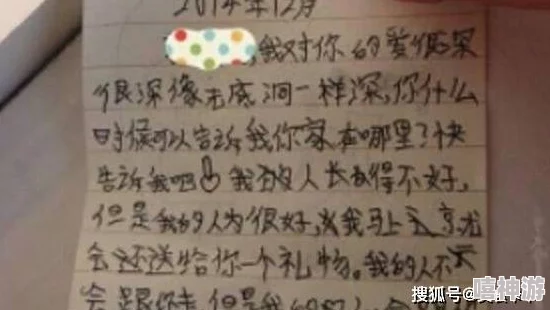 2014年12月
,我对你的爱很深
很深像无底洞一样深,你什么
时候可以告诉我你家在哪里了快
告诉我吧 我的人长的得不好,
但是我的人为很好,我马上
会还送给你一个礼物。我的人不
会跟你走,但是我的
搜狐号
嘻神游